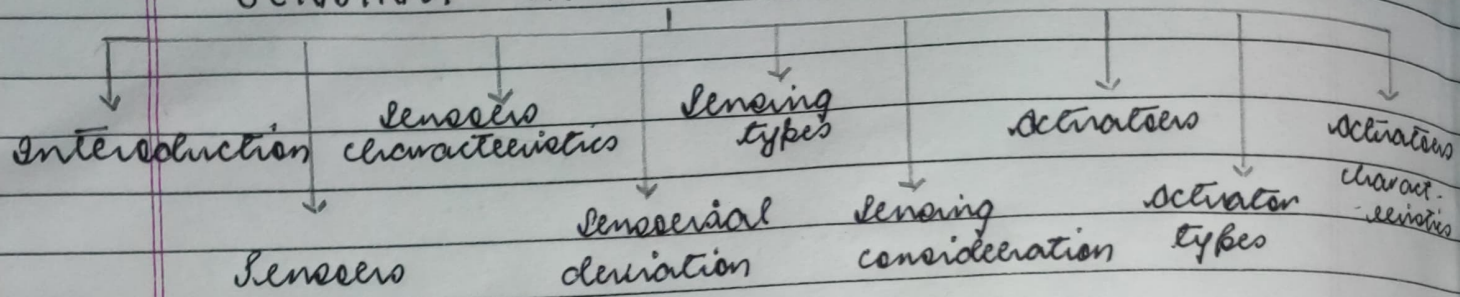 Introduction
Sensors
Sensors
characteristics
Sensorial
deviation
Sensing
types
Sensing
consideration
Actuators
Actuator
types
Actuators
charact-
-eristics